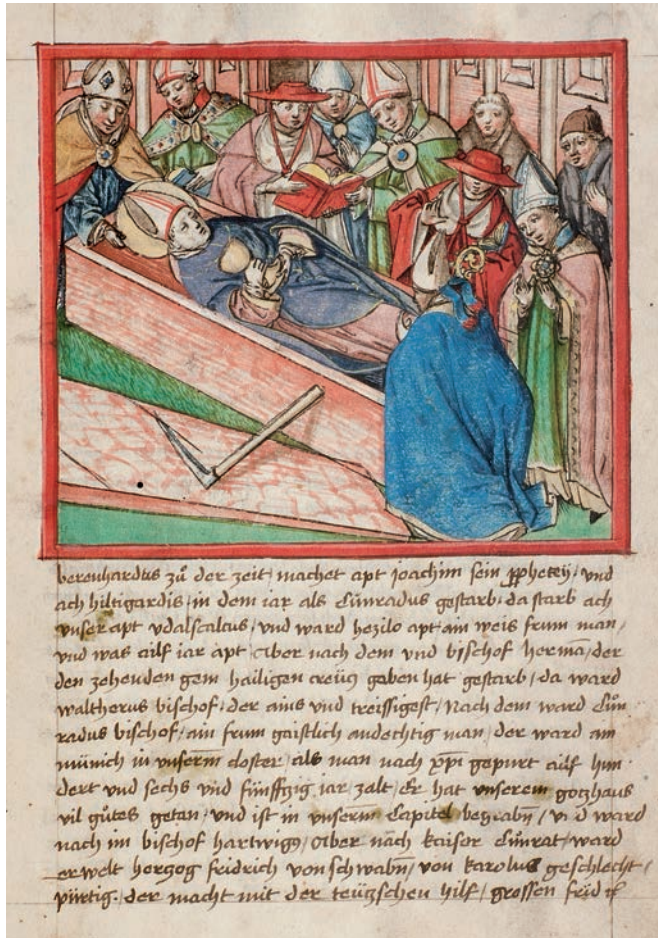 berenhardus zů der zeit machet apt joachim sein ꝓphetey, und
ach hiltigardis, in dem iar als Cůnradus gestarb, da starb ach
vnser apt vdalscalcus, vnd ward hezilo apt ain weis frum man,
vnd was ailf iar apt, aber nach dem vnd bischof herman, der
den zehenden gem hailigen creütz geben hat gestarb, da ward
waltherus bischof, der ains vnd treissigest, Nach dem ward Cůn
radus bischof, ain frum gaistlich andechtig man, der ward ain
münich in vnserm closter, als man nach xp̄i gepurt ailf hun
dert vnd sechs vnd fünffzig iar zalt, Er hat vnserem gotzhaus
vil gůtes getan, vnd ist in vnserm Capitel begrabn, vnd ward
nach im bischof hartwigus, aber nach kaiser Cůnrat, ward
erwelt herzog fridrich von schwabn, von karolus geschlecht
pürtig, der macht mit der teützschen hilf, grossen frid